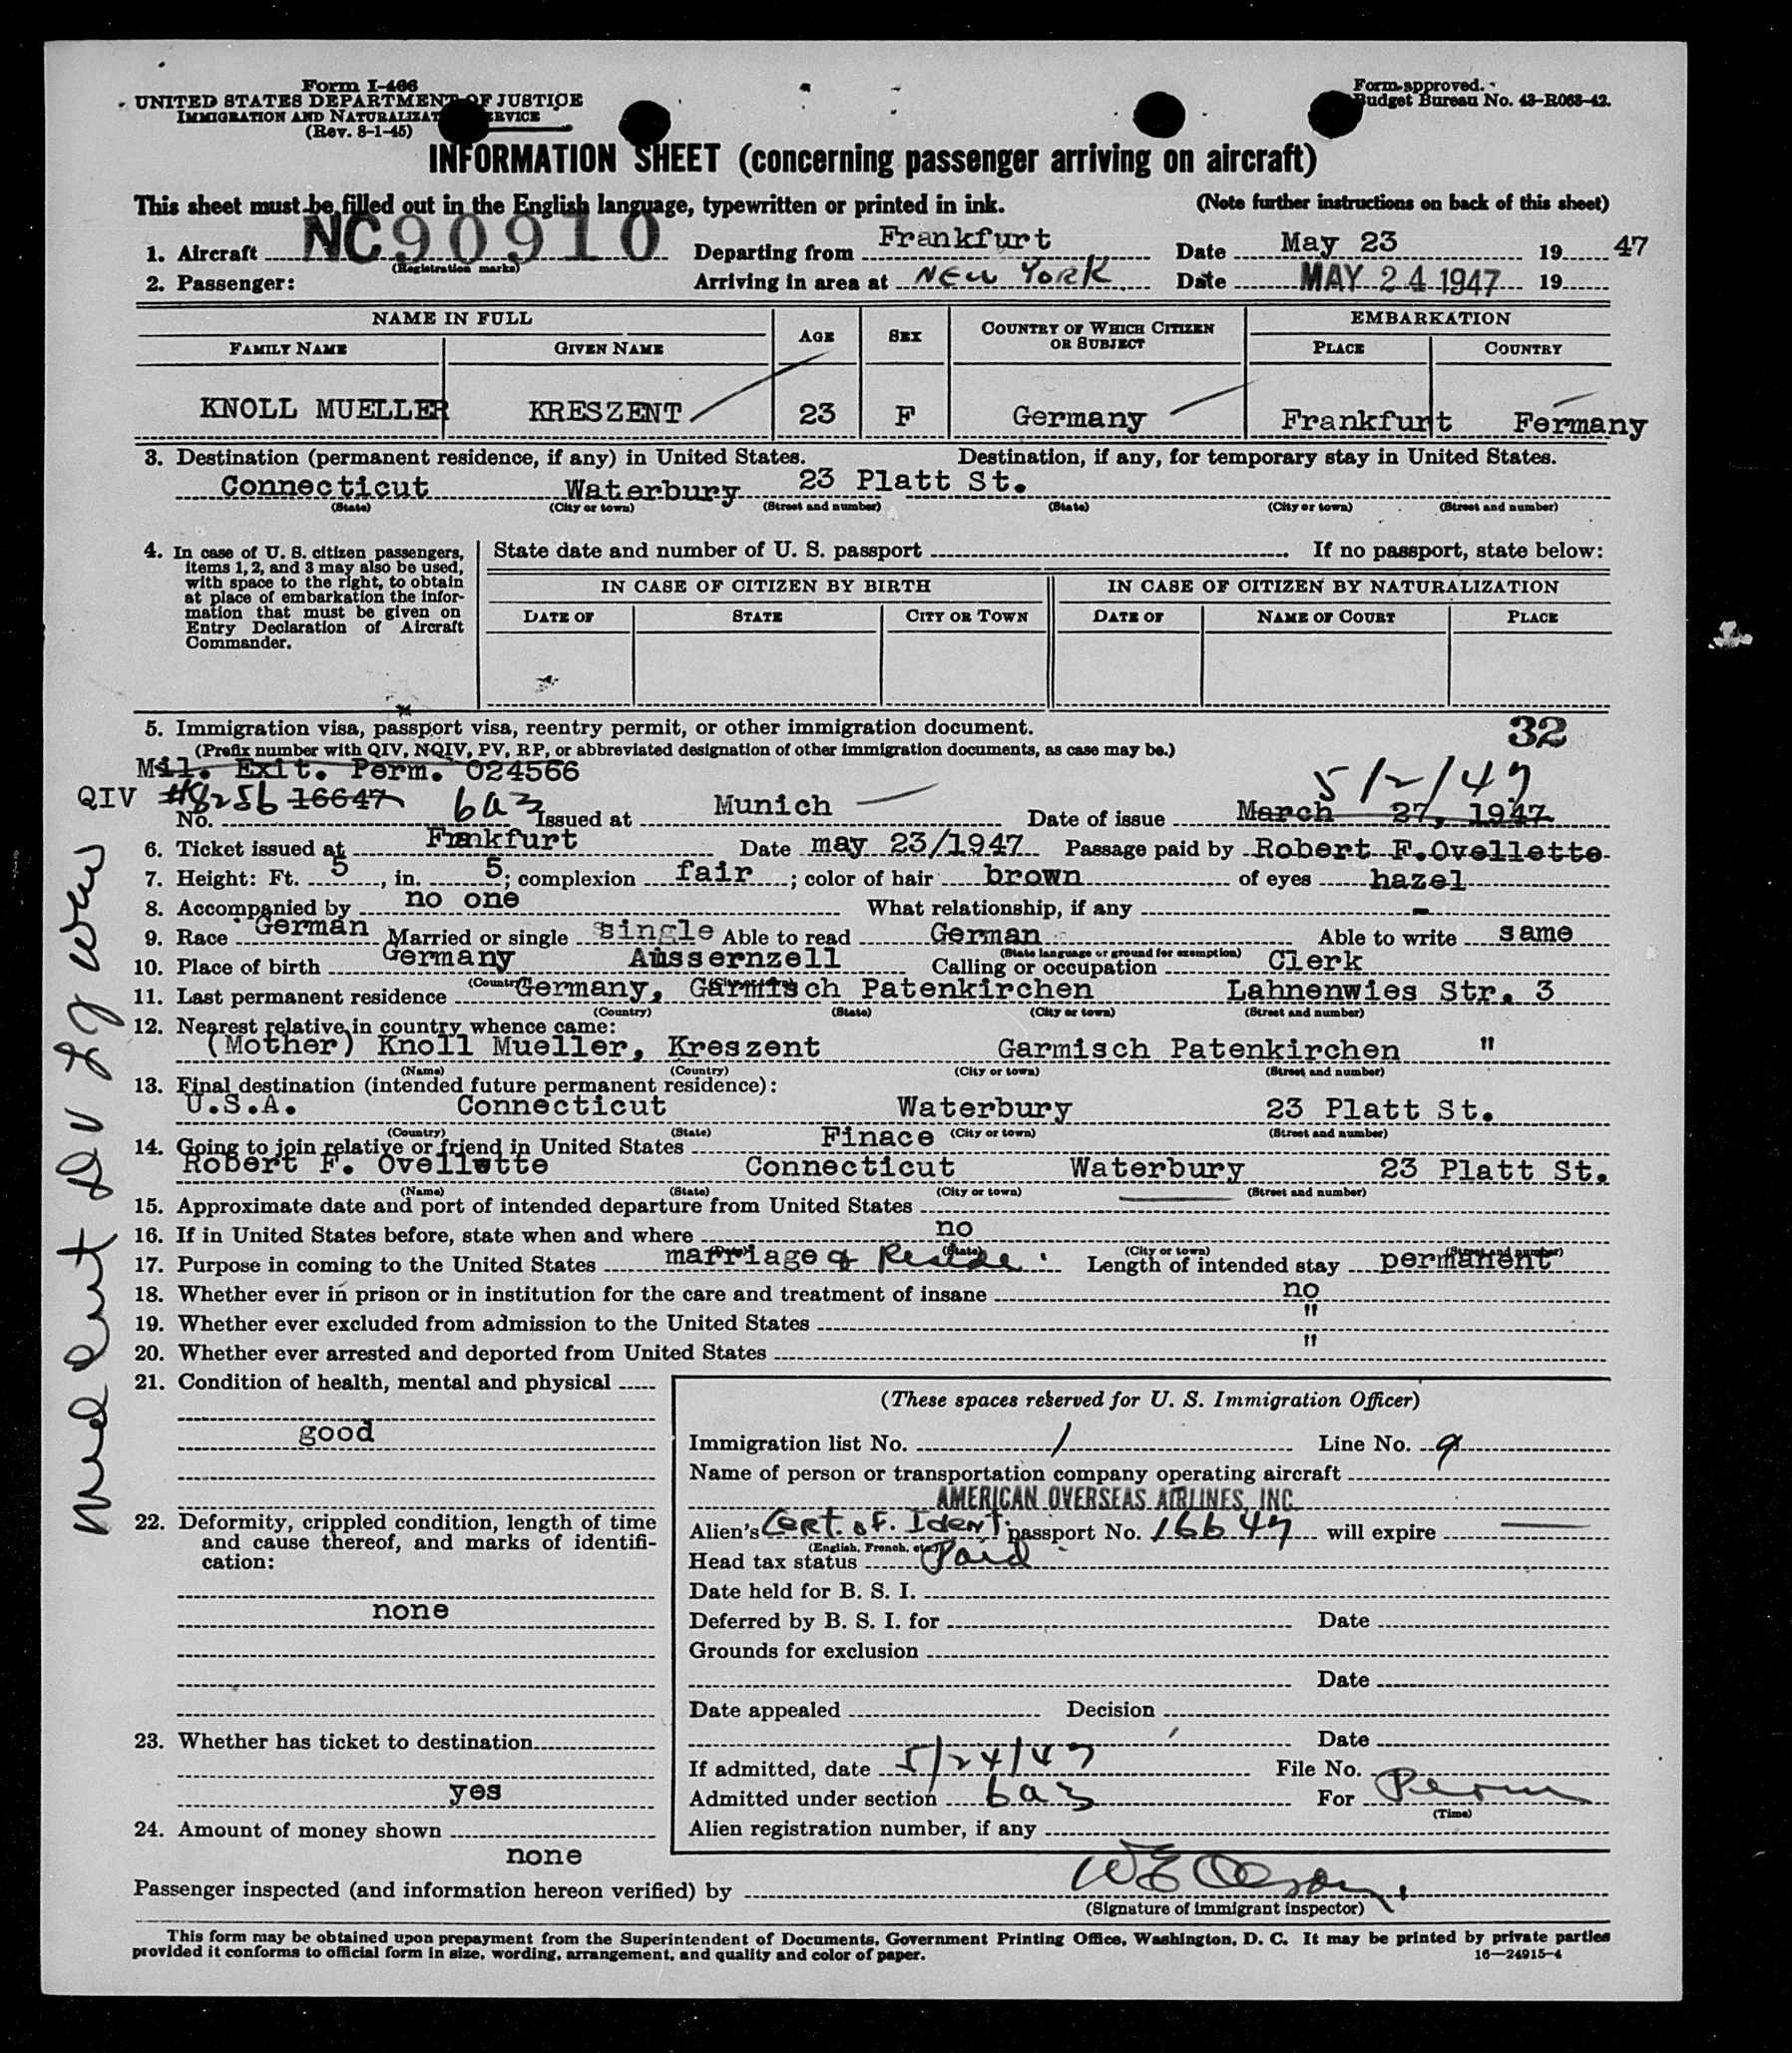 Form I-466
UNITED STATES DEPARTMENT OF JUSTICE
IMMIGRATION AND NATURALIZAT ERVICE
(Rev. 8-1-45)
Form approved.
Budget Bureau No. 43-R063-42.
INFORMATION SHEET (concerning passenger arriving on aircraft)
This sheet must be filled out in the English language, typewritten or printed in ink. (Note further instructions on back of this sheet)
1. Aircraft NC90910 Departing from Frankfurt Date May 23 19 47
(Registration marks)
2. Passenger: Arriving in area at NEW YORK Date MAY 24 1947 19
NAME IN FULL AGE SEX COUNTRY OF WHICH CITIZEN OR SUBJECT EMBARKATION
FAMILY NAME GIVEN NAME PLACE COUNTRY
KNOLL MUELLER KRESZENT 23 F Germany Frankfurt Fermany
3. Destination (permanent residence, if any) in United States. Destination, if any, for temporary stay in United States.
Connecticut Waterbury 23 Platt St.
(State) (City or town) (Street and number) (State) (City or town) (Street and number)
4. In case of U. S. citizen passengers, items 1, 2, and 3 may also be used, with space to the right, to obtain at place of embarkation the information that must be given on Entry Declaration of Aircraft Commander.
State date and number of U. S. passport If no passport, state below:
IN CASE OF CITIZEN BY BIRTH IN CASE OF CITIZEN BY NATURALIZATION
DATE OF STATE CITY OR TOWN DATE OF NAME OF COURT PLACE
5. Immigration visa, passport visa, reentry permit, or other immigration document. 32
(Prefix number with QIV, NQIV, PV, RP, or abbreviated designation of other immigration documents, as case may be.)
Mil. Exit. Perm. 024566
5/2/47
QIV #8256 16647 6a3 Munich March 27, 1947
No. Issued at Date of issue
6. Ticket issued at Frnkfurt Date may 23/1947 Passage paid by Robert F.Ovellette
7. Height: Ft. 5, in. 5; complexion fair; color of hair brown of eyes hazel
8. Accompanied by no one What relationship, if any -
9. Race German Married or single single Able to read German Able to write same
(State language or ground for exemption)
10. Place of birth Germany Aussernzell Calling or occupation Clerk
11. Last permanent residence Germany, Garmisch Patenkirchen Lahnenwies Str. 3
(Country) (State) (City or town) (Street and number)
12. Nearest relative in country whence came:
(Mother) Knoll Mueller, Kreszent Garmisch Patenkirchen "
(Name) (Country) (City or town) (Street and number)
13. Final destination (intended future permanent residence):
U.S.A. Connecticut Waterbury 23 Platt St.
(Country) (State) (City or town) (Street and number)
14. Going to join relative or friend in United States Finace
Robert F. Ovellette Connecticut Waterbury 23 Platt St.
(Name) (State) (City or town) (Street and number)
15. Approximate date and port of intended departure from United States
16. If in United States before, state when and where no
(State) (City or town) (Street and number)
17. Purpose in coming to the United States marriage & Reside Length of intended stay permanent
18. Whether ever in prison or in institution for the care and treatment of insane no
19. Whether ever excluded from admission to the United States "
20. Whether ever arrested and deported from United States "
21. Condition of health, mental and physical
good
22. Deformity, crippled condition, length of time and cause thereof, and marks of identification:
none
23. Whether has ticket to destination
yes
24. Amount of money shown
none
(These spaces reserved for U. S. Immigration Officer)
Immigration list No. 1 Line No. 9
Name of person or transportation company operating aircraft
AMERICAN OVERSEAS AIRLINES, INC.
Alien's Cert. of. Ident. passport No. 16647 will expire
(English, French, etc.)
Head tax status Paid
Date held for B. S. I.
Deferred by B. S. I. for Date
Grounds for exclusion
Date
Date appealed Decision
Date
If admitted, date 5/24/47 File No.
Admitted under section 6a3 For Perm
(Time)
Alien registration number, if any
Passenger inspected (and information hereon verified) by W E Olson
(Signature of immigrant inspector)
This form may be obtained upon prepayment from the Superintendent of Documents, Government Printing Office, Washington, D. C. It may be printed by private parties
provided it conforms to official form in size, wording, arrangement, and quality and color of paper. 16—24915-4